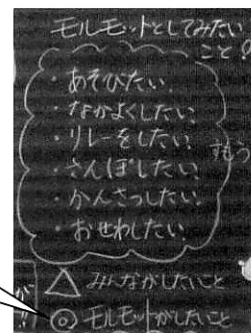 モルモットとしてみたい
こと?
・あそびたい
・なかよくしたい
・リレーをしたい
すもう
・さんぽしたい
・かんさつしたい
・おせわしたい
△ みんながしたいこと
が
!!
◎ モルモットがしたいこと